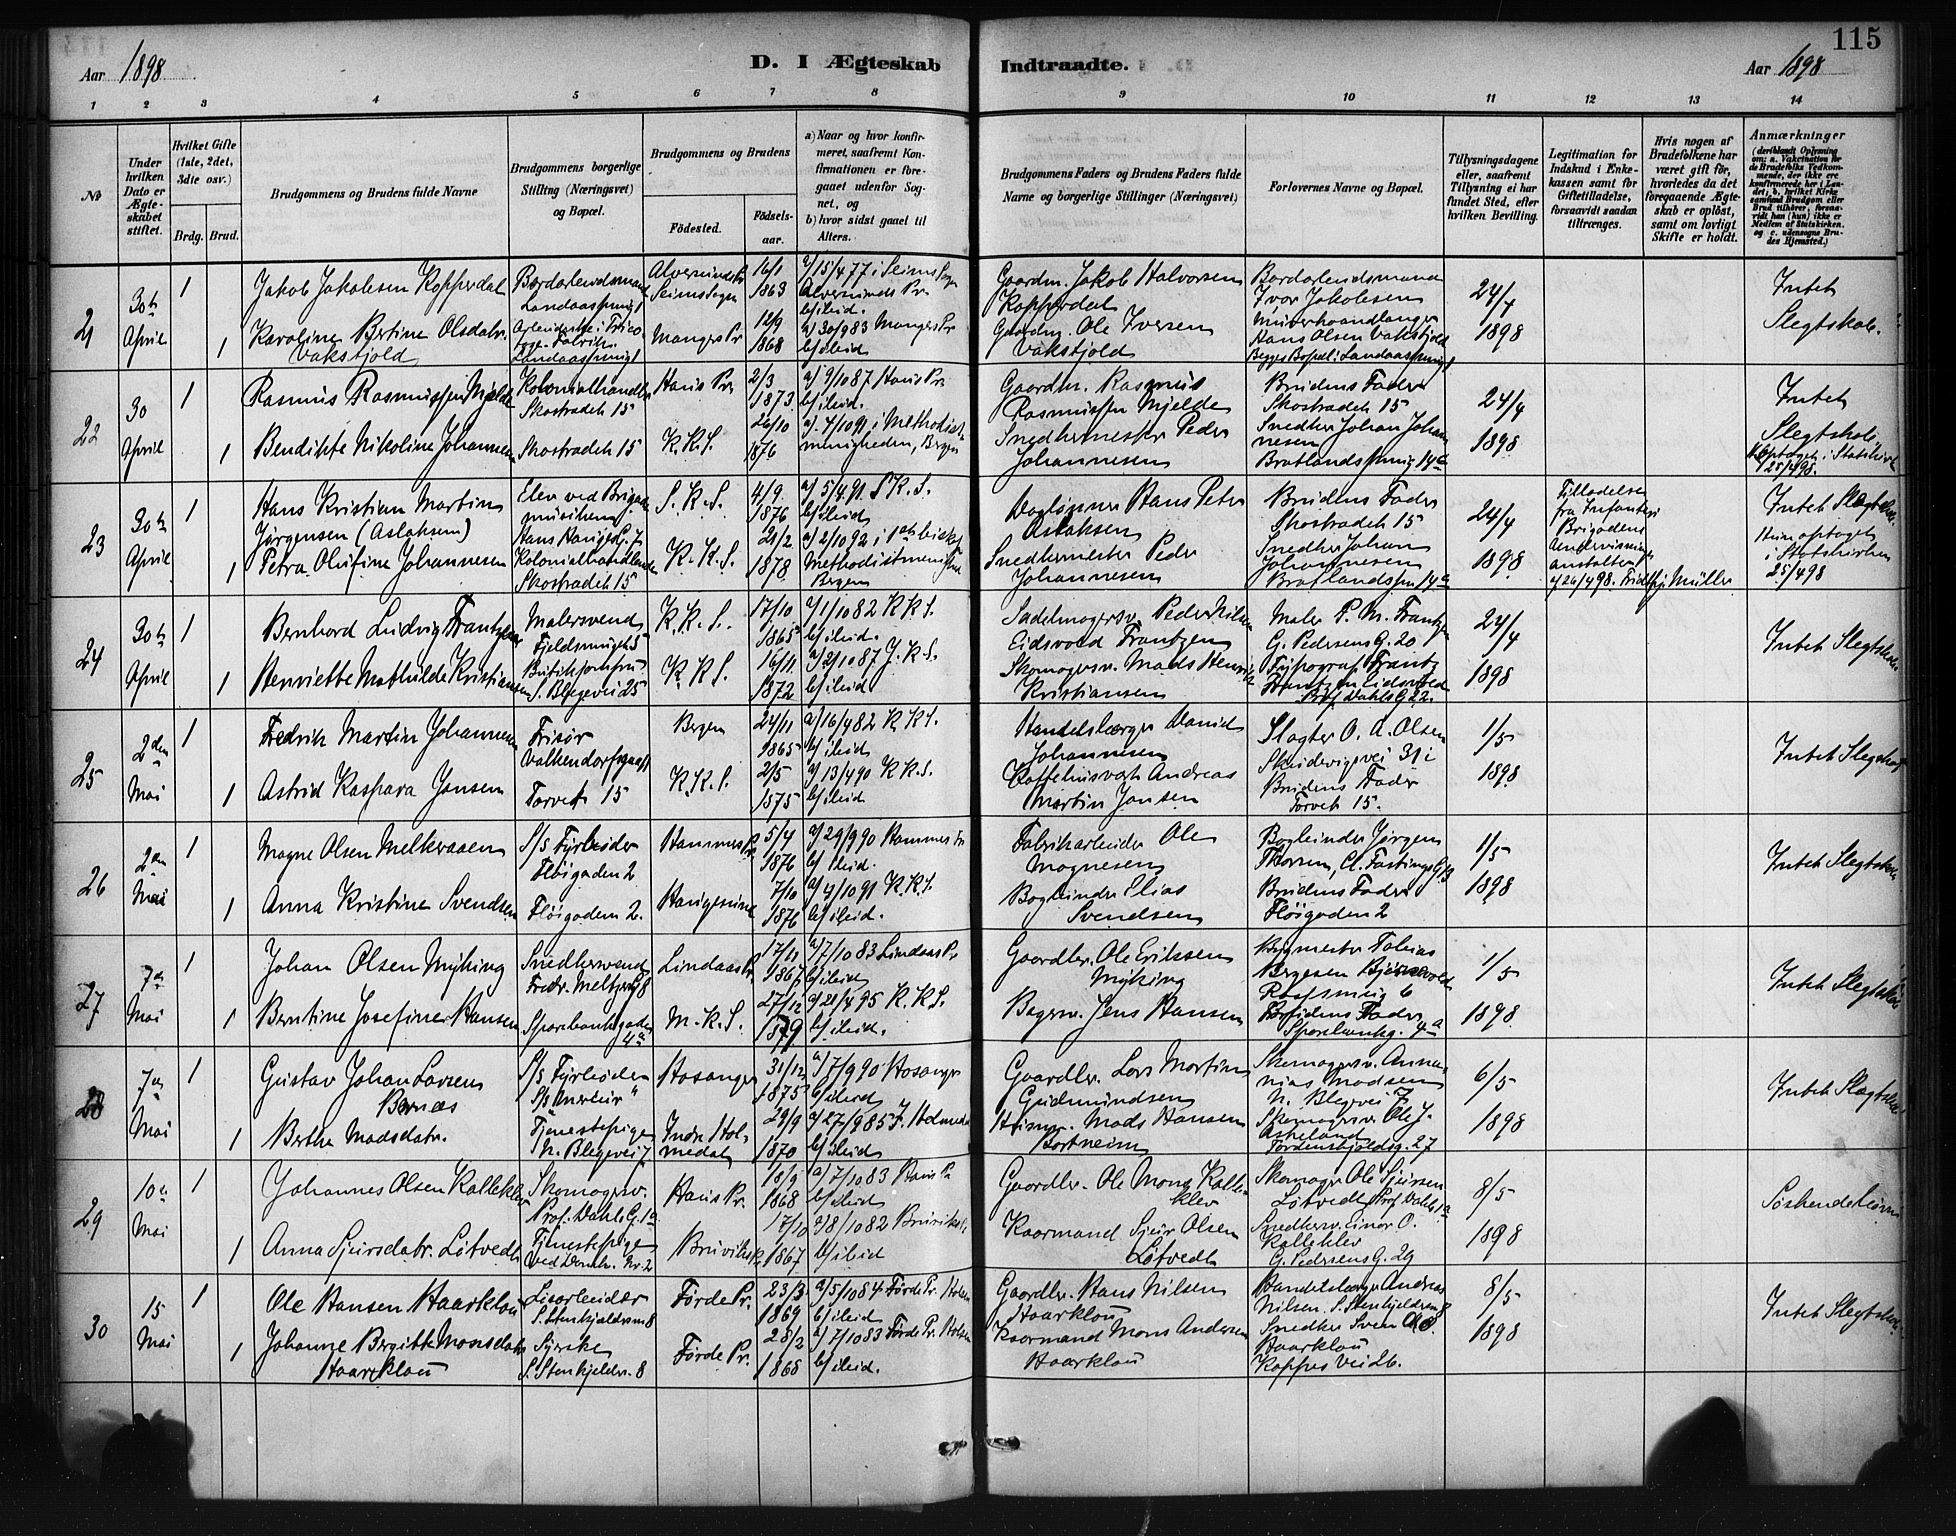 115
Aar 1898
D. I Ægteskab
Indtraadte.
Aar 1898
1 2 3 4 5 6 7 8 9 10 11 12 13 14
№
Under hvilken Dato er Ægteskabet stiftet.
Hvilket Gifte (1ste, 2det, 3die osv.)
Brdg. Brud.
Brudgommens og Brudens fulde Navne
Brudgommens borgerlige Stilling (Næringsvei) og Bopæl.
Brudgommens og Brudens
Fødested.
Fødselsaar.
a) Naar og hvor konfirmeret, saafremt Konfirmationen er foregaaet udenfor Sognet, og
b) hvor sidst gaaet til Alters.
Brudgommens Faders og Brudens Faders fulde Navne og borgerlige Stillinger (Næringsvei)
Forlovernes Navne og Bopæl.
Tillysningsdagene eller, saafremt Tillysning ei har fundet Sted, efter hvilken Bevilling.
Legitimation for Indskud i Enkekassen samt for Giftetilladelse, forsaavidt saadan tiltrænges.
Hvis nogen af Brudefolkene har været gift før, hvorledes da det foregaaende Ægteskab er opløst, samt om lovligt Skifte er holdt.
Anmærkninger (deriblandt Oplysning om: a. Vakcination for de Brudefolks Vedkommende, der ikke ere konfirmerede her i Landet; b. hvilket Kirkesamfund Brudgom eller Brud tilhører, forsaavidt han (hun) ikke er Medlem af Statskirken. og c. udensogns Brudes Hjemsted.)
21
30te April
1
Jakob Jakobsen Kopperdal
Bordarbeidsmand
Alversunds Pr
Seims Sogn
16/1 1863
a/ 15/4 77 i Seims Sogn
Alversunds Pr.
b/ ibid.
Gaardm. Jakob Halvorsen
Kopperdal
Ivar Jakobsen
24/4 1898
Intet
Slegtskab.
1
Karoline Bertine Olsdatr.
Vakstjold
Mangers Pr
12/9 1868
a/ 30/9 83 Mangers Pr
b/ ibid
Gaardm. Ole Iversen
Vakstjold
Hans Olsen Vakstjold
22
30 April
1
Rasmus Rasmussen Mjelde
Kolonialhandler
Skostrædet 15
Haus Pr.
2/3 1873
a/ 9/10 87 Haus Pr.
b/ ibid.
Gaardm. Rasmus
Rasmussen Mjelde
Brudens Fader
Skostrædet 15
24/4 1898
Intet
Slegtskab,
1
Bendikte Nikoline Johannesen
Skostrædet 15
K.K.S.
26/10 1876
a. 4/10 91 i Methodistmenigheden, Bergen
Snedkermester Peder
Johannesen
Snedker Johan Johannesen
optaget i Statskirken
25/4 98.
23
30te April
1
Hans Kristian Martin
Jørgensen (Aslaksen)
Elev ved Brigademusiken
S.K.S.
4/9 1876
a/ 5/4 91 S.K.S.
b/ ibid
Hans Peter
Aslaksen
Brudens Fader
Skostrædet 15
24/4 1898
Tilladelse
fra Infanteri
Brigadens
Intet Slegtskab.
1
Petra Olufine Johannesen
Kolonialhandlende
Skostrædet 15
K.K.S.
21/2 1878.
a/ 2/10 92
Methodistmenighed
Bergen
Snedkermester Peder
Johannesen
Snedker Johan
Johannesen
26/4 98. Müller
optaget
i Statskirken
25/4 98
24
30te April
1
Bernhard Ludvig Frantzen
Malersvend
K.K.S.
17/10 1865
a/ 1/10 82 K.K.S.
b/ ibid.
Sadelmagersv. Peder Nilsen
Eidsvold Frantzen
Maler P. M. Frantzen
G. Pedersens G. 20
24/4 1898
Intet Slegtskab
1
Henriette Mathilde Kristiansen
S. Blegevei 25
K.K.S.
16/11 1872
a/ 2/10 87 J.K.S.
b/ ibid
Skomagersv. Mads Henrik
Kristiansen
Typograf Frantz
Frantzen Eidsvold
Prof. Dahls G. 22.
25
2den Mai
1
Fredrik Martin Johannesen
Frisør
Bergen
24/11 1865
a/ 16/4 82 K.K.S.
b/ ibid
Handelsborger David
Johannesen
Slagter O. A. Olsen
Skudevigsvei 31 i
1/5 1898
Intet Slegtskab
1
Astrid Kaspara Jansen
Torvet 15
K.K.S.
2/5 1875
a/ 13/4 90 K.K.S.
b/ ibid
Kaffehusvært Andreas
Martin Jansen
Brudens Fader
Torvet 15.
26
2den Mai
1
Magne Olsen Melkeraaen
S/s Fyrbøder
Fløigaden 2
Hammers Pr.
5/4 1876
a/ 29/9 90 Hammers Pr
b/ ibid.
Fabrikarbeider Ole
Magnesen
Bogbinder Jørgen
Thorsen, Cl. Fastings G. 13
1/5 1898
Intet Slegtskab
1
Anna Kristine Svendsen
Fløigaden 2.
Haugesund
7/10 1876
a/ 4/10 91 K.K.S.
b/ ibid.
Bogbinder Elias
Svendsen
Brudens Fader
Fløigaden 2
27
7de Mai
1
Johan Olsen Myking
Snedkersvend
Fredr. Meltzersg 8
Lindaas Pr.
17/11 1867
a/ 7/10 83 Lindaas Pr
b/ ibid
Gaardbr. Ole Eriksen
Myking
Bygmester Tobias
Bergesen Bjørnevold
1/5 1898
Intet Slegtskab
1
Berntine Josefine Hansen
Sparebankgaden
4a
M.K.S.
27/12 1879
a/ 21/4 95 K.K.S.
b/ ibid.
Bagersv. Jens Hansen
Brudens Fader
Sparebankg. 4a
28
7de Mai
1
Gustav Johan Larsen
Bernæs
S/s Fyrbøder
Hosanger
31/12 1875
a/ 7/9 90 Hosanger
b/ ibid
Gaardbr. Lars Martin
Gudmundsen
Skomagersv. Annanias Madsen
N. Blegevei 7
6/5 1898
Intet Slegtskab
1
Berthe Madsdatr.
Tjenestepige
N. Blegevei 7
Indre Holmedal
29/9 1870
a/ 27/9 85 I. Holmedal
b/ ibid
Husmd. Mads Hansen
Skomagersv. Ole J.
Askeland
Tordenskjoldsg. 27
29
10de Mai
1
Johannes Olsen Kalleklev
Skomagersv.
Prof. Dahls G. 1a
Haus Pr.
18/9 1868
a/ 7/10 83 Haus Pr
b/ ibid
Gaardbr. Ole Mons. Kalleklev
Skomager Ole Sjursen
Løtvedt, Prof. Dahls G. 1a
8/5 1898
Søskendebørn
1
Anna Sjursdatr. Løtvedt
Tjenestepige
17/10 1867
a/ 8/10 82
b/ ibid
Kaarmand Sjur Olsen
Løtvedt
Snedkersv. Einar O.
Kalleklev
G. Pedersens G. 29
30
15 Mai
1
Ole Hansen Haarklau
Førde Pr.
23/3 1869
a/ 5/10 84 Førde Pr. Holsen
b/ ibid
Gaardbr. Hans Nilsen
Haarklau
Handelsborger Andreas
Nilsen
8/5 1898
Intet Slegtskab.
1
Johanne Bergitte Monsdatr
Haarklau
Syerske
S. Stenkjelderv. 8
Førde Pr.
28/2 1868
a/ 7/10 83 Førde Pr. Holsen
b/ ibid.
Kaarmand Mons Andersen
Haarklau
Snedker Svein
Haarklau
Kappes Vei 26.